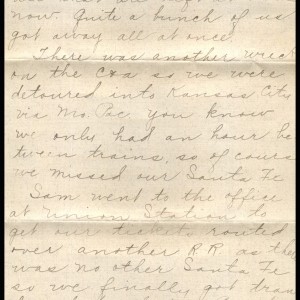 now. Quite a bunch of us
got away all at once.
There was another wreck
on the C+a so we were
detoured into Kansas City
via Mo. Pac. You know
we only had an hour be
tween trains, so of cours
we missed our Santa Fe
Sam went to the office
at Union Station to
get our tickets routed
over another R.R. as the
was no other Santa Fe
so we finally got tran